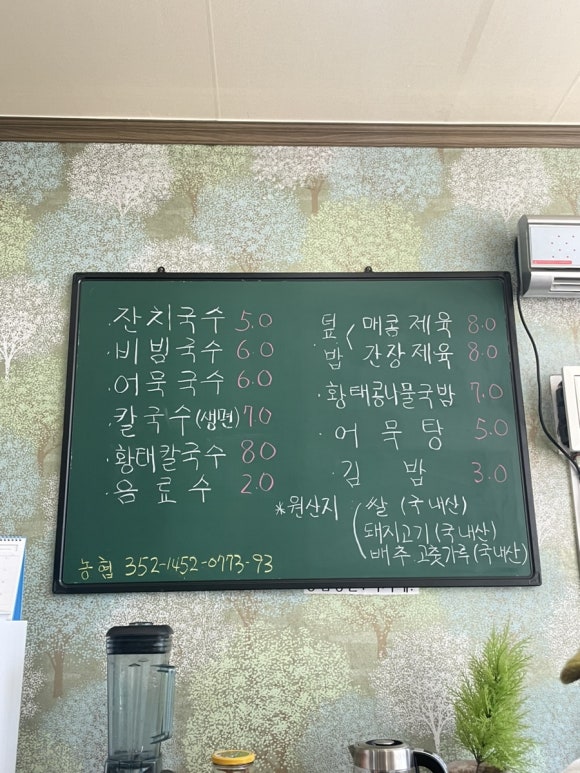 잔치국수 5.0
비빔국수 6.0
어묵국수 6.0
칼국수(생면) 7.0
황태칼국수 8.0
음료수 2.0
농협 352-1452-0773-93
덮밥
매콤제육 8.0
간장제육 8.0
황태콩나물국밥 7.0
어묵탕 5.0
김밥 3.0
*원산지
쌀 (국내산)
돼지고기(국내산)
배추.고춧가루(국내산)